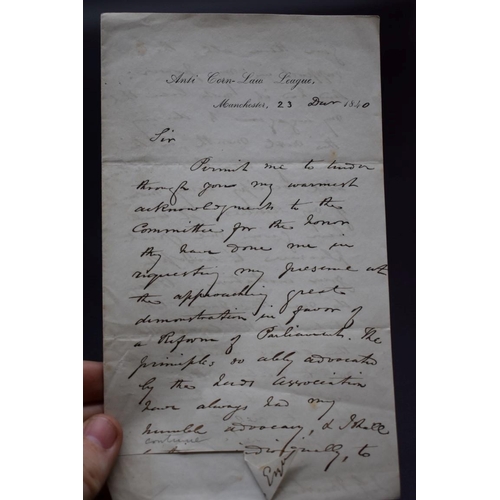 Anti Corn-Law League,
Manchester, 23 Decr 1840
Sir
Permit me to tender
through you my warmest
acknowledgments to the
Committee for the honor
they have done me in
requesting my presence at
the approaching great
demonstration in favor of
a Reform of Parliament. The
principles so ably advocated
by the Leeds Association
have always had my
humble advocacy, & I shall
continue
to